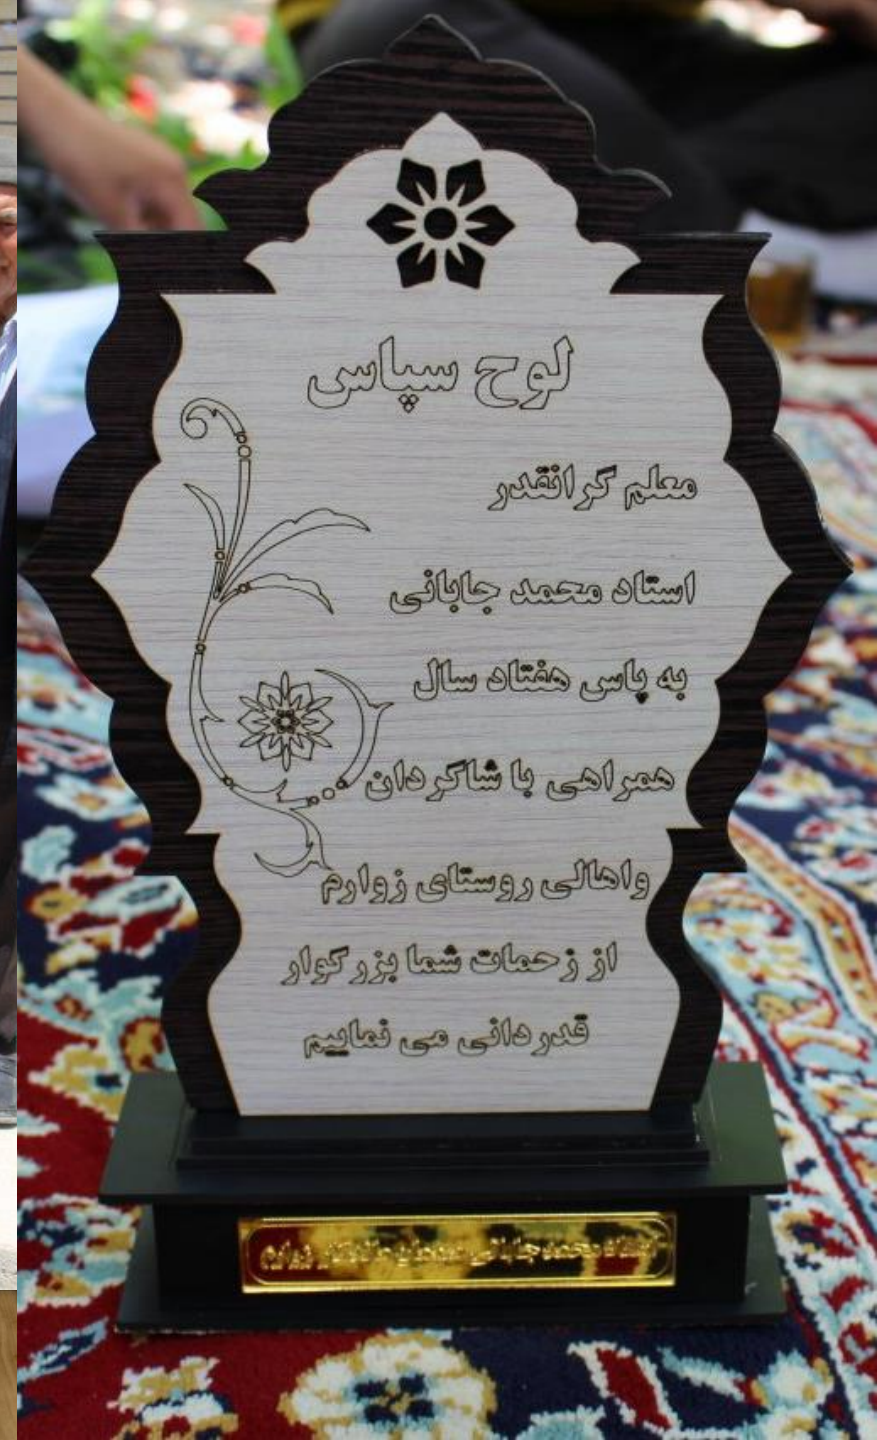 لوح سپاس
معلم گرانقدر
استاد محمد جابانی
به پاس هفتاد سال
همراهی با شاگردان
واهالی روستای زوارم
از زحمات شما بزرگوار
قدردانی می نماییم
استاد محمد جابانی